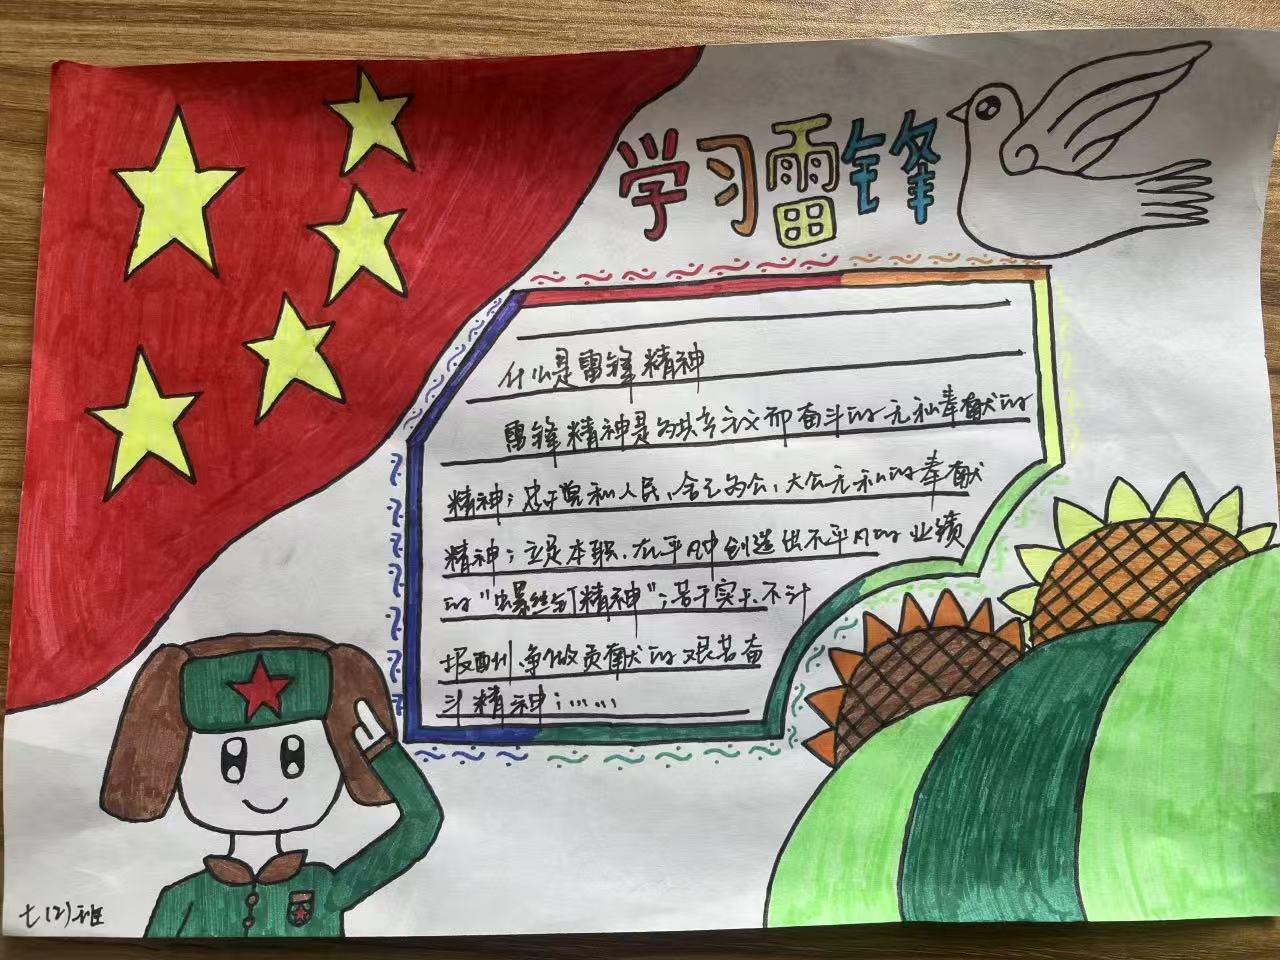 学习雷锋
什么是雷锋精神
雷锋精神是为共产主义而奋斗的无私奉献的
精神；忠于党和人民、舍己为公、大公无私的奉献
精神；立足本职、在平凡中创造出不平凡的业绩
的“螺丝钉精神”；苦干实干、不计
报酬、争做贡献的艰苦奋
斗精神；……
七(2)班